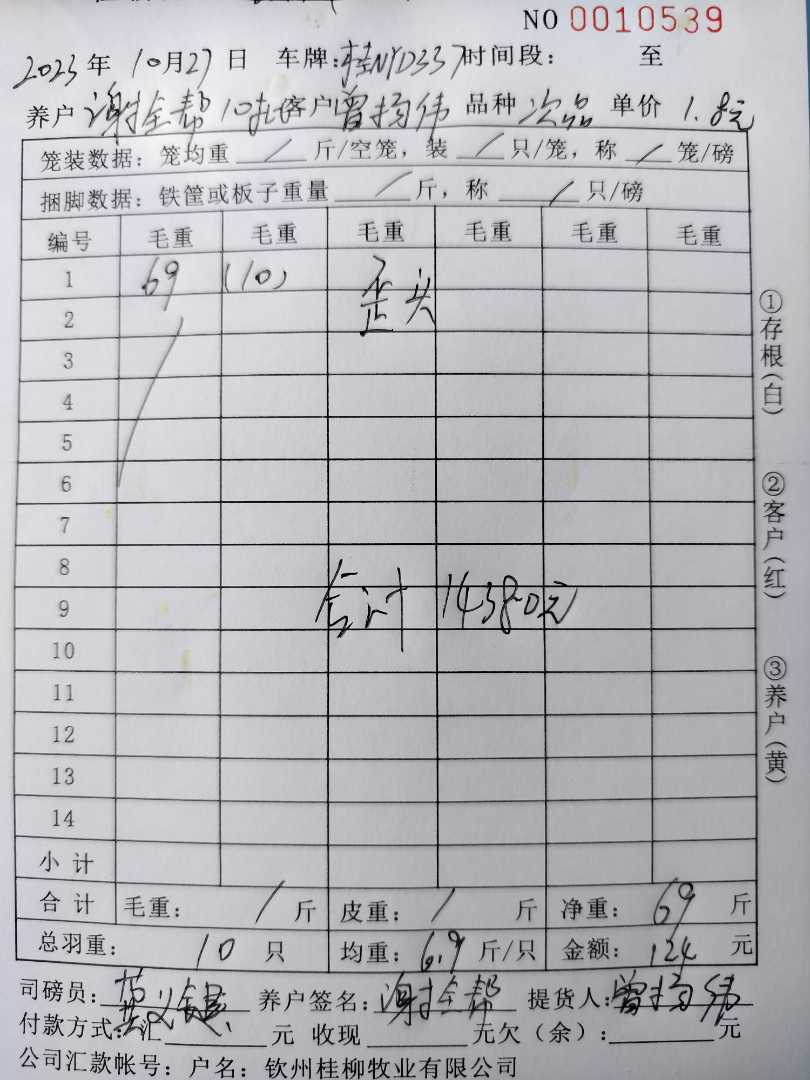 NO 0010539
2023年10月27日 车牌:桂NYD337时间段: 至
养户谢全帮10批客户曾扬伟 品种 次品 单价 1.8元
笼装数据: 笼均重 / 斤/空笼, 装 / 只/笼, 称 / 笼/磅
捆脚数据: 铁筐或板子重量 / 斤, 称 / 只/磅
编号 毛重 毛重 毛重 毛重 毛重 毛重
1 69 (10) 歪头
2
3
4
5
6
7
8
合计 14380元
9
10
11
12
13
14
小 计
合 计 毛重: / 斤 皮重: / 斤 净重: 69 斤
总羽重: 10 只 均重: 6.9 斤/只 金额: 124 元
司磅员: 养户签名: 谢全帮 提货人: 曾扬伟
付款方式: 汇 元 收现 元欠(余): 元
公司汇款帐号: 户名: 钦州桂柳牧业有限公司
①存根(白)
②客户(红)
③养户(黄)